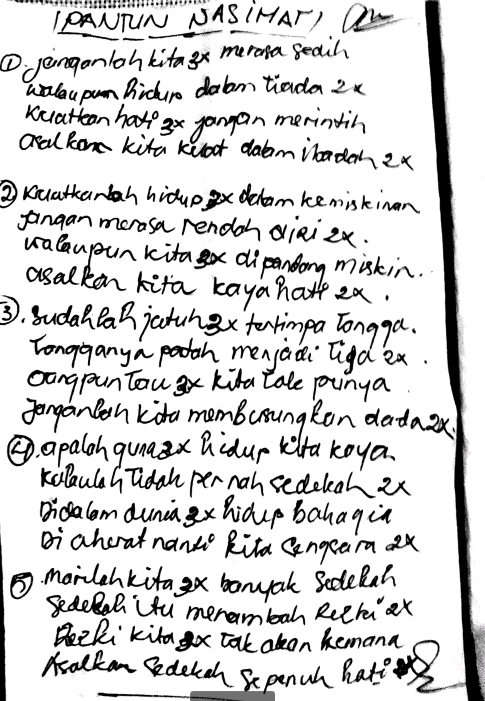 (PANTUN NASIHAT)
① janganlah kita 3x merasa sedih
walaupun hidup dalam tiada 2x
Kuatkan hati 3x jangan merintih
asalkan kita kuat dalam ibadah 2x
② Kuatkanlah hidup 3x dalam kemiskinan
jangan merasa rendah diri 2x.
walaupun kita 3x dipandang miskin.
asalkan kita kaya hati 2x.
③. sudahlah jatuh 3x tertimpa tangga.
tangganya patah menjadi tiga 2x.
orangpun tau 3x kita tak punya
Janganlah kita membusungkan dada 2x.
④. apalah guna 3x hidup kita kaya
kalaulah tidak pernah sedekah 2x
Didalam dunia 3x hidup bahagia
Di aherat nanti kita sengsara 2x
⑤ marilah kita 3x banyak sedekah
sedekah itu menambah rezki 2x
Rezki kita 3x tak akan kemana
Asalkan sedekah sepenuh hati